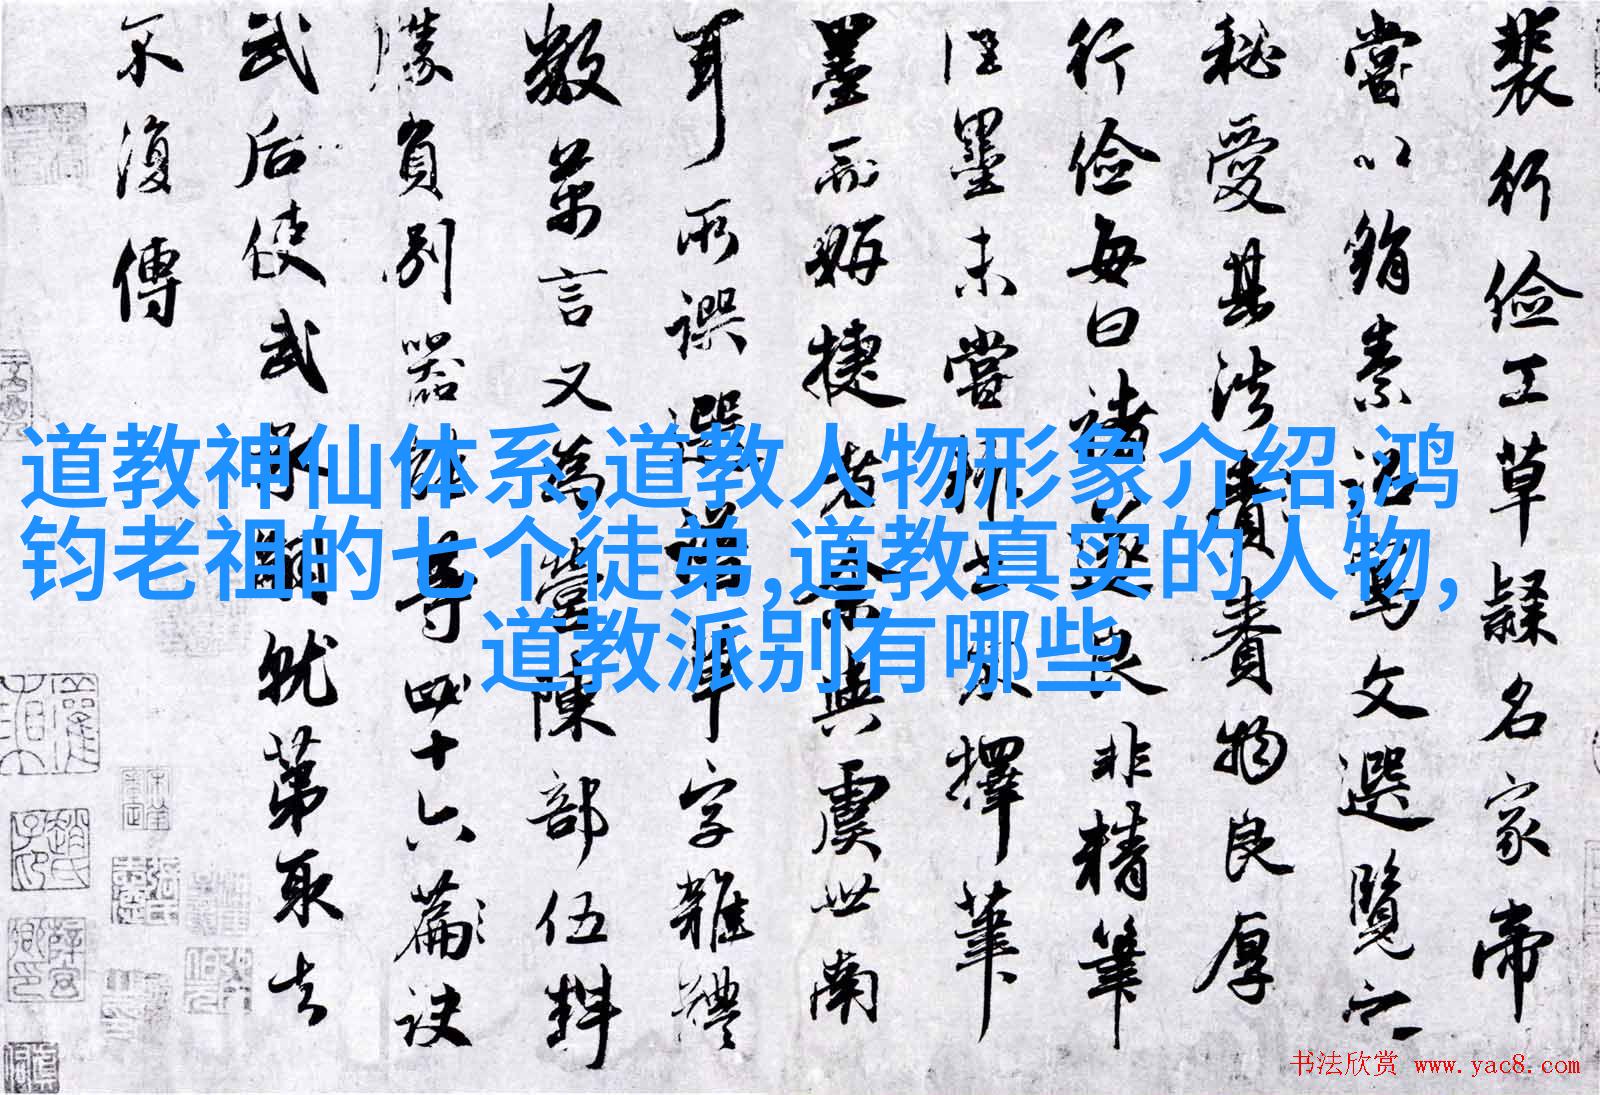 裴行俭工草隸名家帝
嘗以絹素詔寫文選覽之
秘愛其法賚賚物良厚
行俭每曰褚遂良非精筆
佳墨未嘗輒書不擇筆
墨而妍捷者余與虞世南
耳所譔選譜草字雜體
數萬言又為營陳部伍料
勝負別器能等四十六篇訣
武后使武承嗣就第取去
不復傳
道教神仙体系,道教人物形象介绍,鸿
钧老祖的七个徒弟,道教真实的人物,
道教派别有哪些
书法欣赏 www.yac8.com